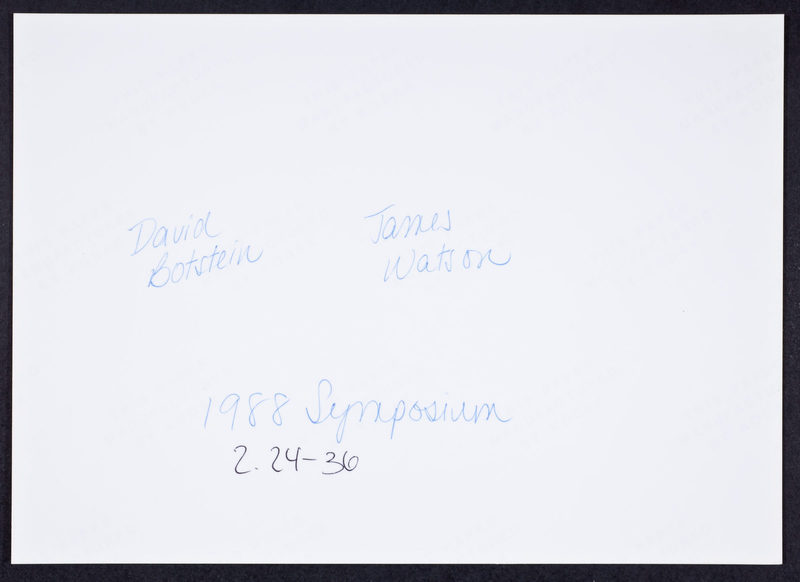 David James
Botstein Watson
1988 Symposium
2. 24-36